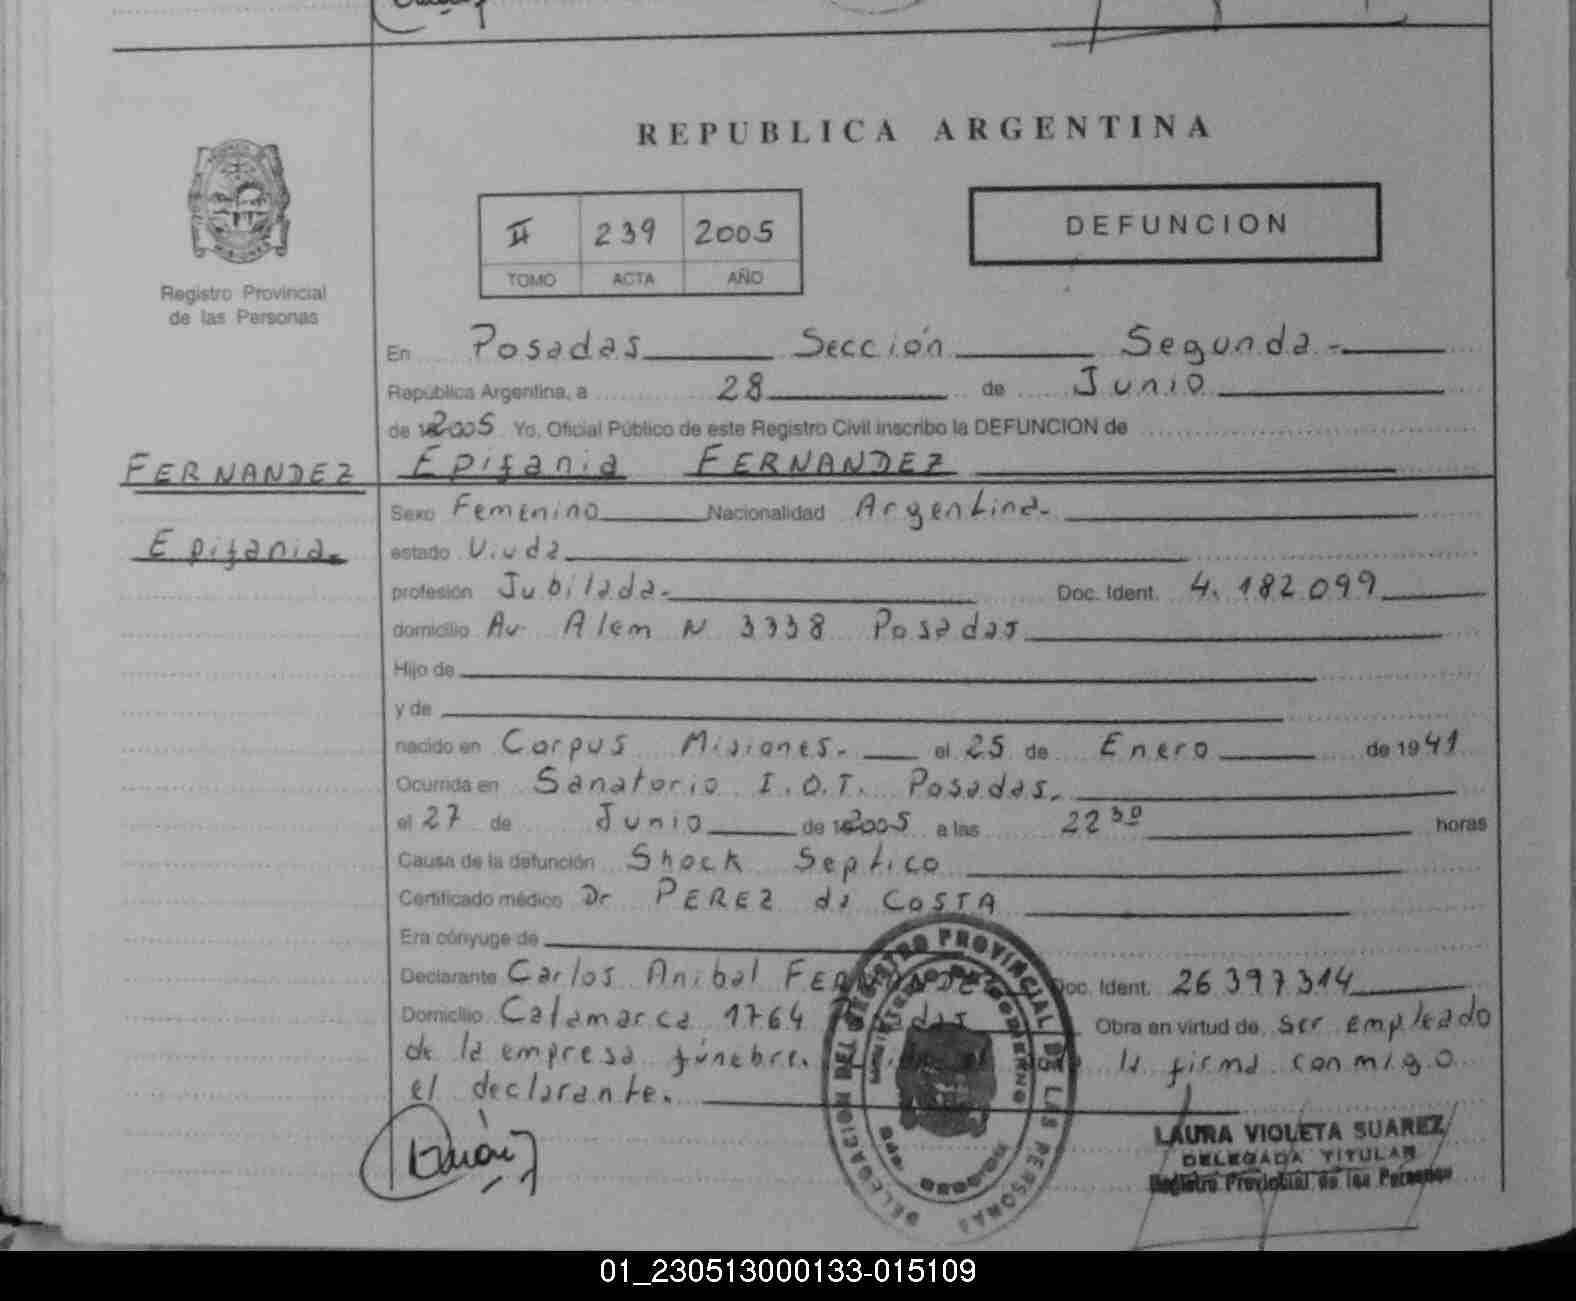 REPUBLICA ARGENTINA
II 239 2005
TOMO ACTA AÑO
DEFUNCION
Registro Provincial
de las Personas
En Posadas Sección Segunda.-
República Argentina, a 28 de Junio
de 2005 Yo, Oficial Público de este Registro Civil inscribo la DEFUNCION de
FERNANDEZ Epifania FERNANDEZ
Epifania.
Sexo Femenino Nacionalidad Argentina.
estado Viuda
profesión Jubilada. Doc. Ident. 4.182.099
domicilio Av. Alem N 3338 Posadas
Hijo de
y de
nacido en Corpus Misiones. el 25 de Enero de 1941
Ocurrida en Sanatorio I.O.T. Posadas.
el 27 de Junio de 2005 a las 22 30 horas
Causa de la defunción Shock Septico
Certificado médico Dr PEREZ da COSTA
Era cónyuge de
Declarante Carlos Anibal FERNANDEZ Doc. Ident. 26.397.314
Domicilio Catamarca 1764 Posadas Obra en virtud de ser empleado
de la empresa fúnebre. la firma conmigo
el declarante.
DELEGACION DEL REGISTRO PROVINCIAL DE LAS PERSONAS
MINISTERIO DE GOBIERNO
LAURA VIOLETA SUAREZ
DELEGADA TITULAR
Registro Provincial de las Personas
01_230513000133-015109